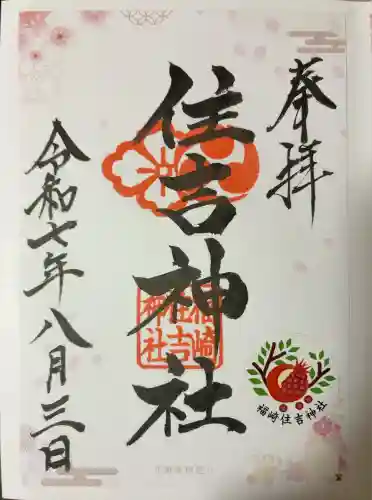 奉拝
住吉神社
福崎
住吉
神社
福崎住吉神社
令和七年八月三日